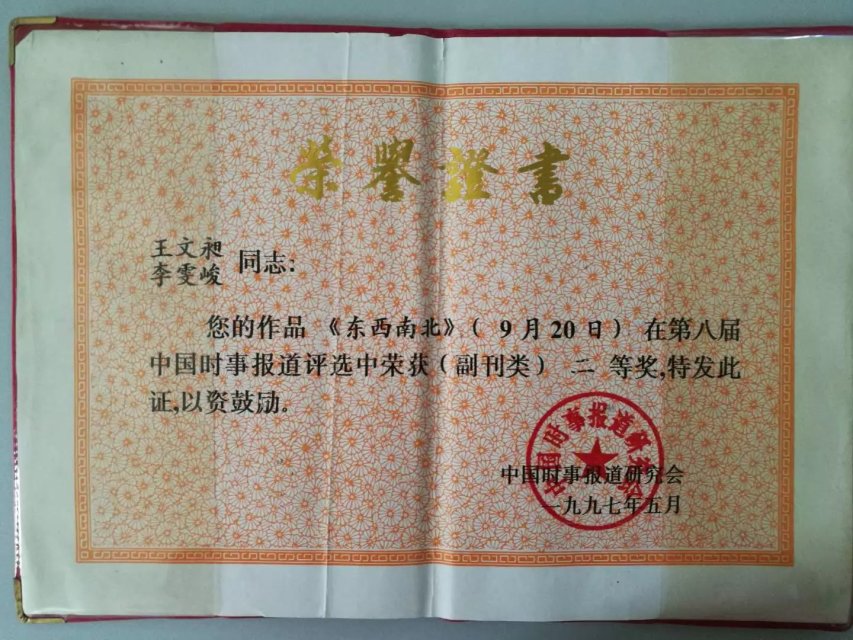 荣譽證書
王文昶
李雯峻
同志:
您的作品《东西南北》(9月20日)在第八届
中国时事报道评选中荣获(副刊类)二等奖,特发此
证,以资鼓励。
中国时事报道研究会
中国时事报道研究会
一九九七年五月